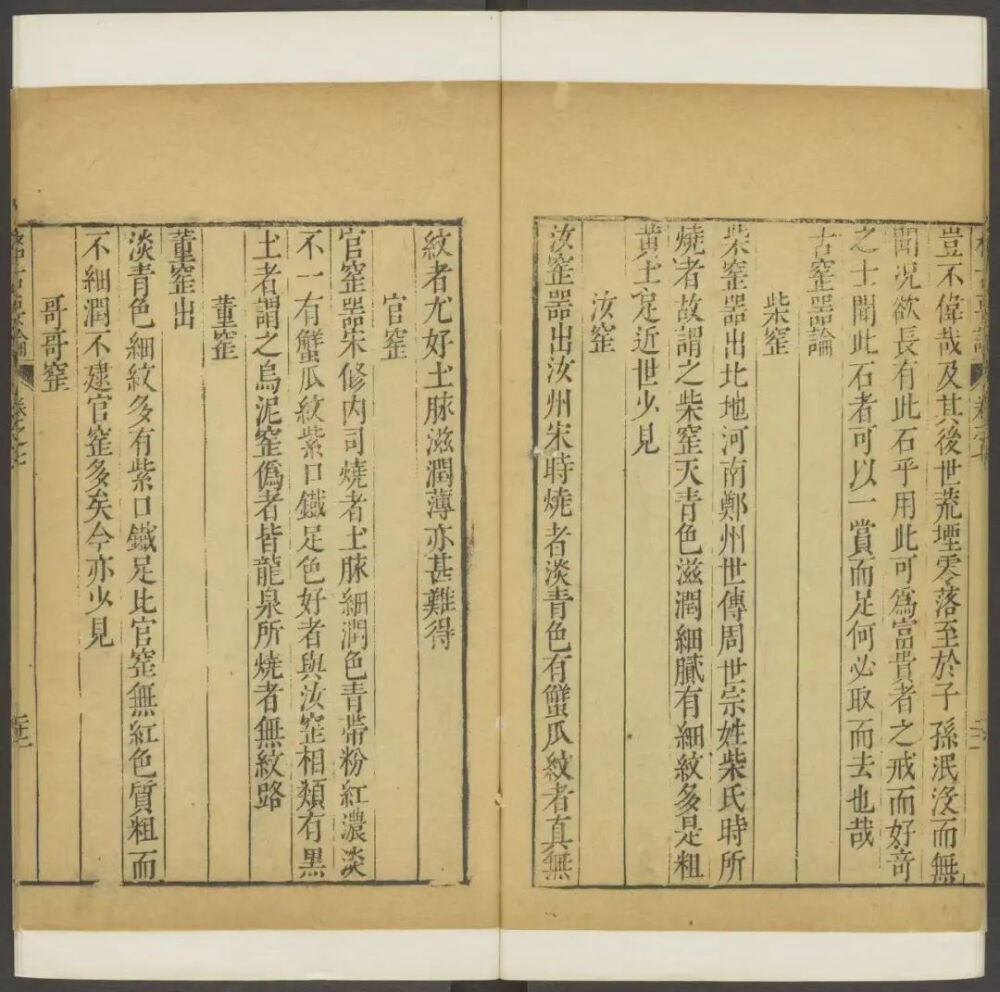 豈不偉哉及其後世荒堙零落至於子孫泯没而無
聞况欲長有此石乎用此可爲富貴者之戒而好竒
之士聞此石者可以一賞而足何必取而去也哉
古窑噐論
柴窑
柴窑噐出北地河南鄭州世傳周世宗姓柴氏時所
燒者故謂之柴窑天青色滋潤細膩有細紋多是粗
黄土足近世少見
汝窑
汝窑噐出汝州宋時燒者淡青色有蟹瓜紋者真無
紋者尤好土脉滋潤薄亦甚難得
官窑
官窑噐宋修内司燒者土脉細潤色青帶粉紅濃淡
不一有蟹瓜紋紫口鐵足色好者與汝窑相類有黑
土者謂之烏泥窑僞者皆龍泉所燒者無紋路
董窑
董窑出
淡青色細紋多有紫口鐵足比官窑無紅色質粗而
不細潤不逮官窑多矣今亦少見
哥哥窑